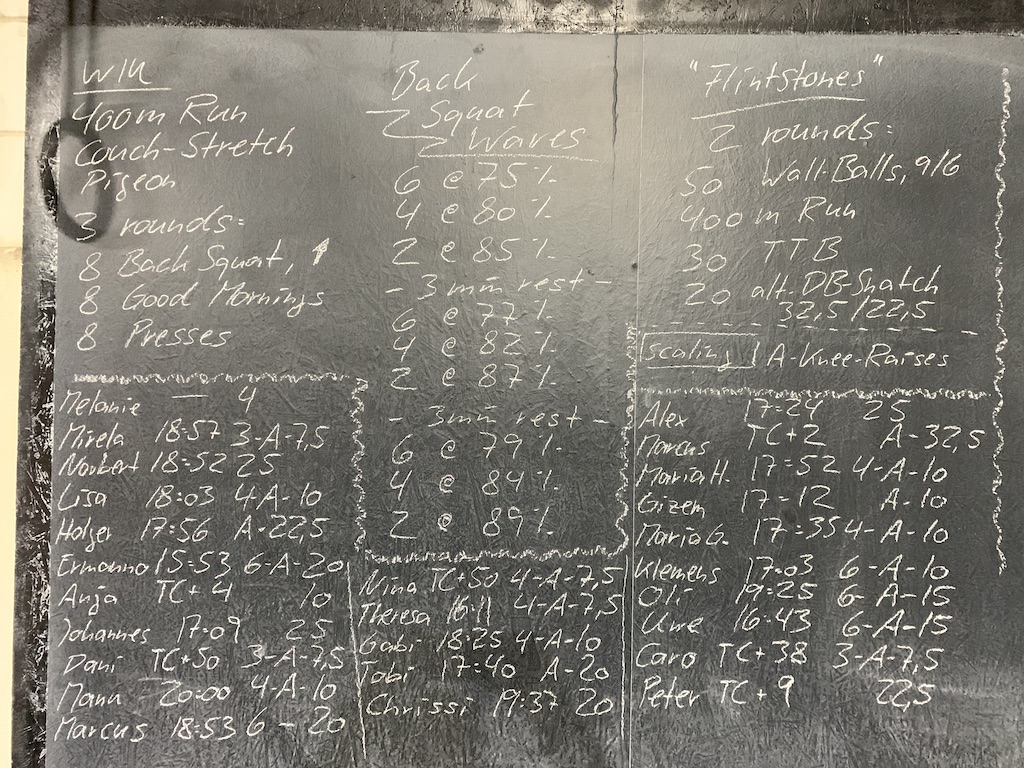 WIN
400m Run
Couch-Stretch
Pigeon
3 rounds:
8 Back Squat,
8 Good Mornings
8 Presses
Melanie — 4
Mirela 18:57 3-A-7,5
Norbert 18:52 25
Lisa 18:03 4-A-10
Holger 17:56 A-22,5
Ermanno 15:53 6-A-20
Anja TC+4 10
Johannes 17:09 25
Dani TC+50 3-A-7,5
Manu 20:00 4-A-10
Marcus 18:53 6-20
Back
Squat
2 Waves
6 @ 75%
4 @ 80%
2 @ 85%
- 3min rest -
6 @ 77%
4 @ 82%
2 @ 87%
- 3min rest -
6 @ 79%
4 @ 84%
2 @ 89%
Nina TC+50 4-A-7,5
Theresa 16:11 4-A-7,5
Gabi 18:25 4-A-10
Tobi 17:40 A-20
Chrissi 19:37 20
"Flintstones"
2 rounds:
50 Wall-Balls, 9/6
400m Run
30 TTB
20 alt. DB-Snatch
32,5/22,5
scaling A-Knee-Raises
Alex 17:24 25
Marcus TC+2 A-32,5
Maria H. 17:52 4-A-10
Gizem 17:12 A-10
Maria G. 17:35 4-A-10
Klemens 17:03 6-A-10
Oli 19:25 6-A-15
Uwe 16:43 6-A-15
Caro TC+38 3-A-7,5
Peter TC+9 22,5